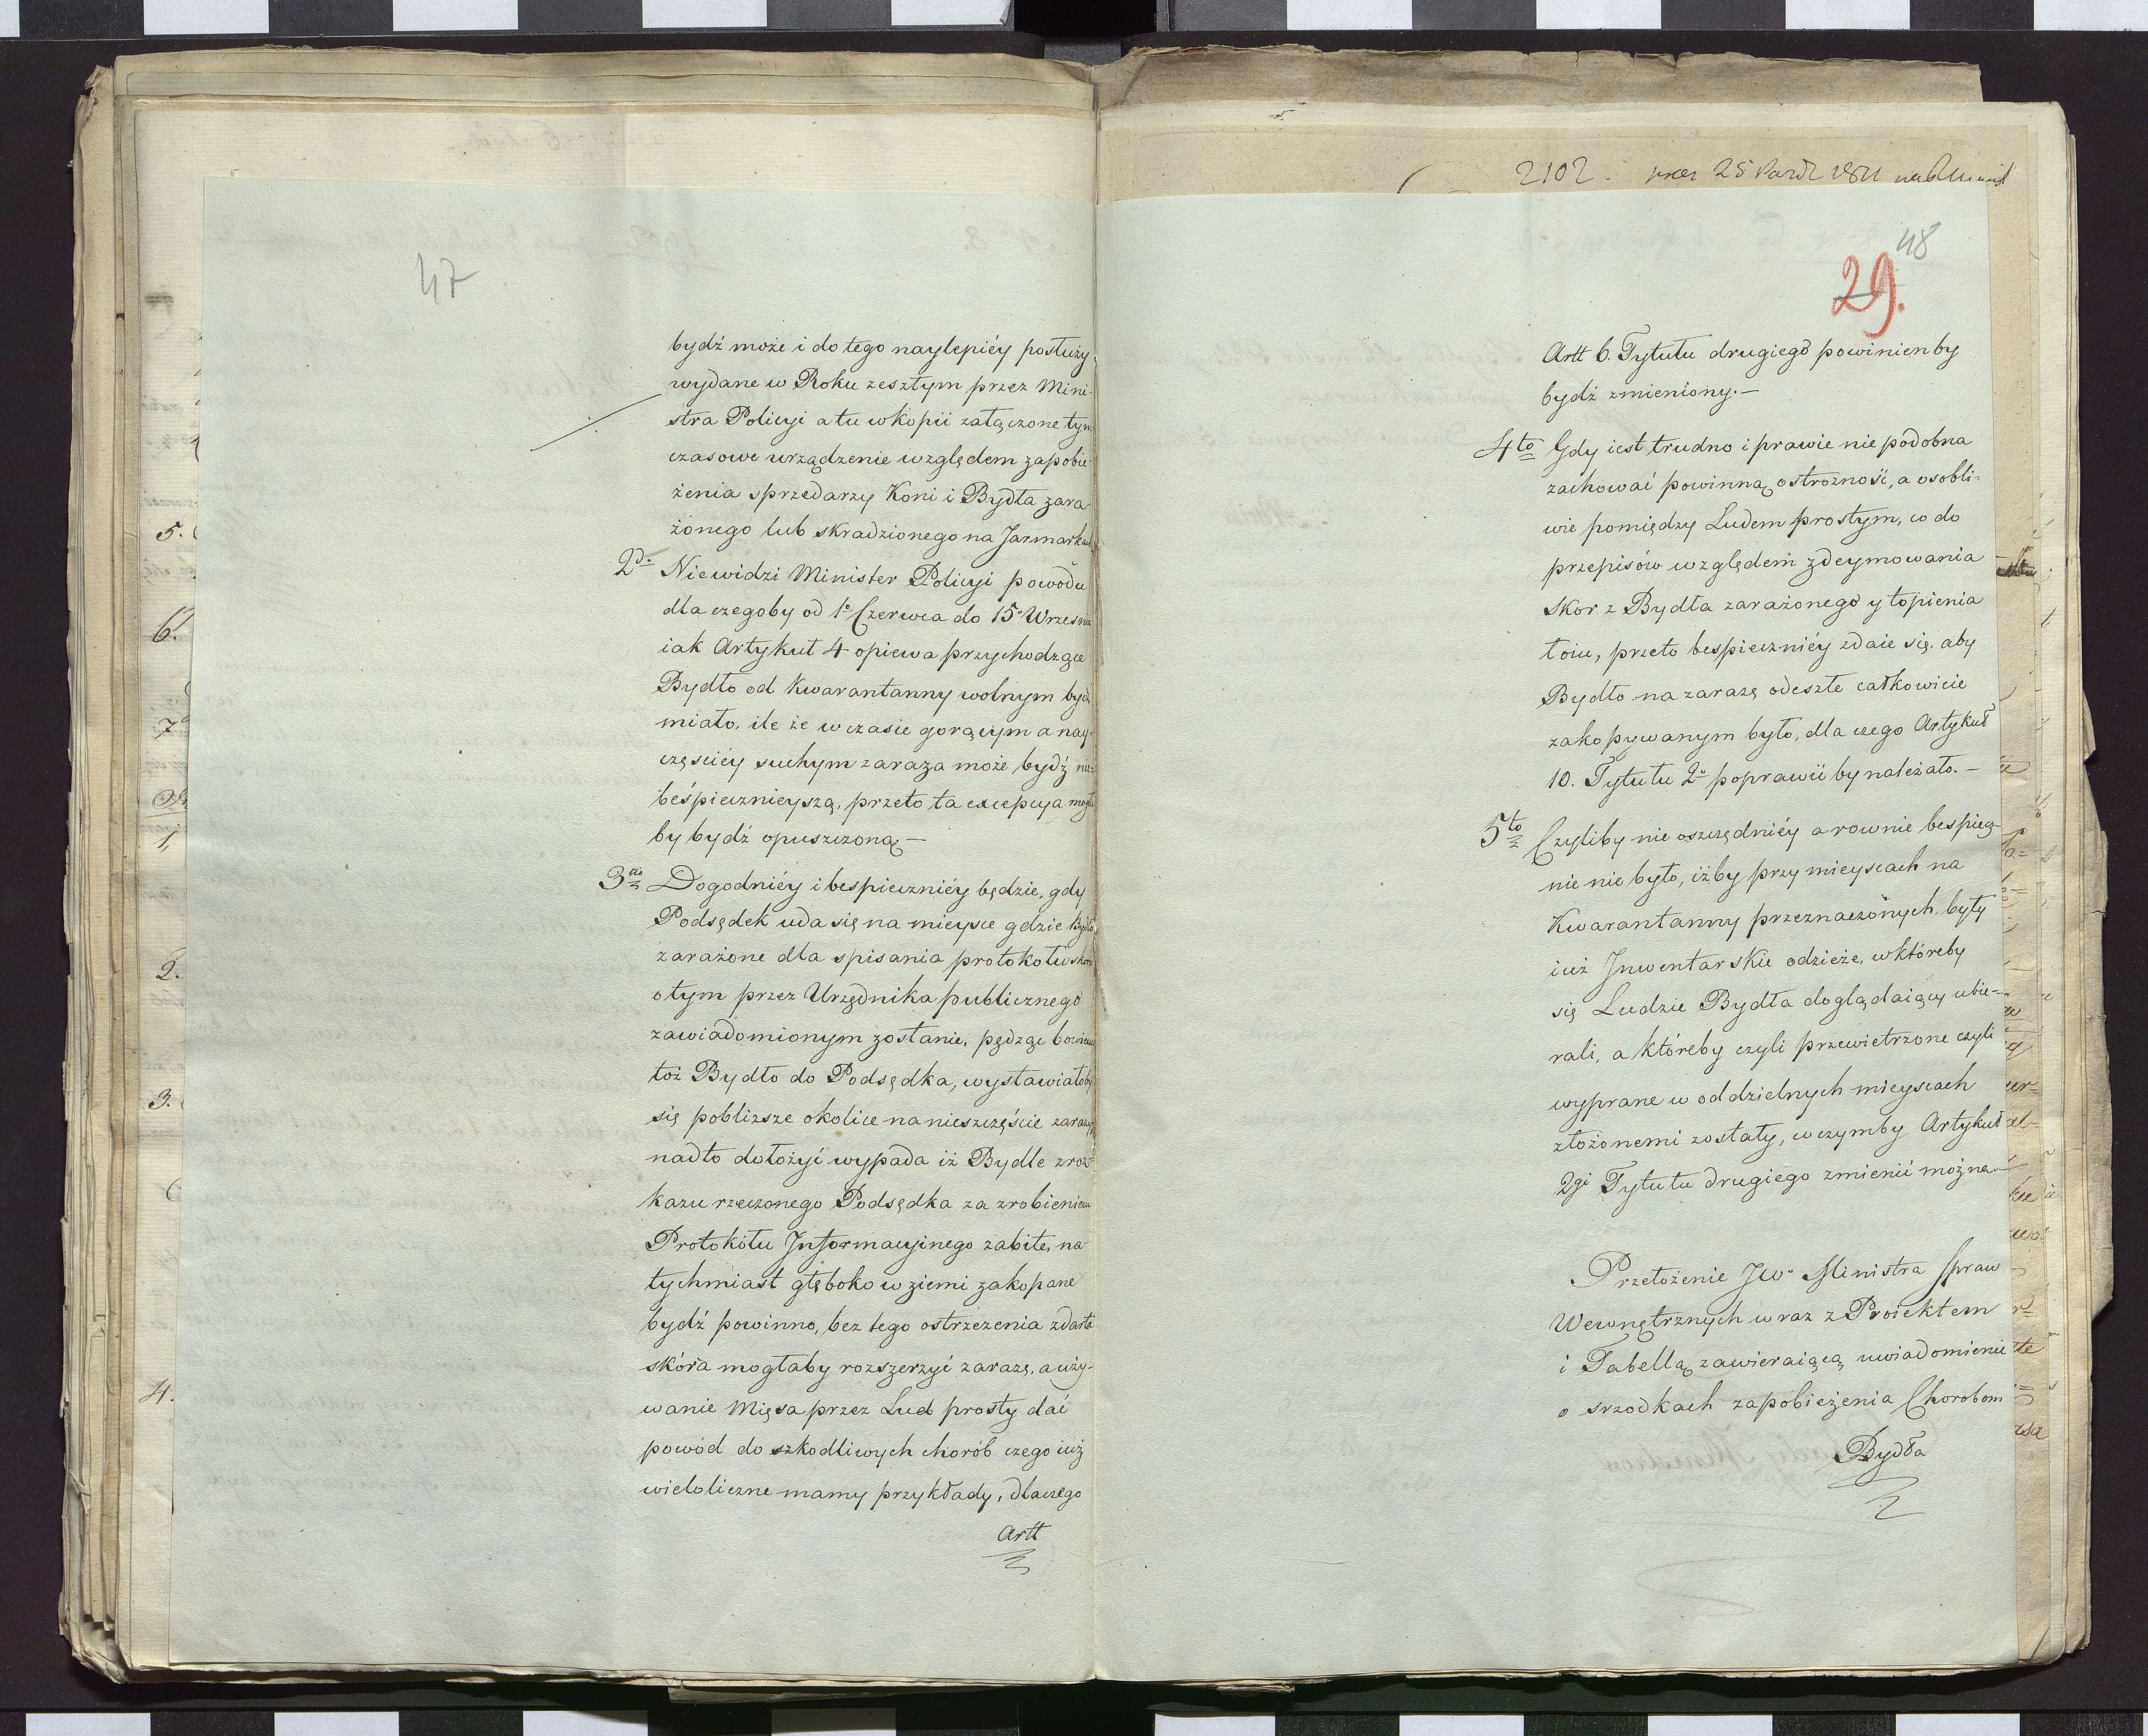 47
bydź może i do tego naylepiéy posłuży
wydane w Roku zeszłym przez Mini-
stra Policyi a tu w kopii załączone tym
czasowe urządzenie względem zapobie-
żenia sprzedarzy Koni i Bydła zara
żonego lub skradzionego na Jarmarkach
2do Niewidzi Minister Policyi powodu
dla czegoby od 1o Czerwca do 15o Wrzesnia
iak Artykuł 4 opiewa przychodzące
Bydło od Kwarantanny wolnym bydź
miało, ile że w czasie gorącym a nay-
częściéy suchym zaraza może bydź nie-
beśpiecznieyszą, przeto ta excepcya mogła
by bydź opuszczoną —
3tio Dogodniéy i bespieczniéy będzie, gdy
Podsędek uda się na mieysce gdzie Bydło
zarażone dla spisania protokołu skoro
o tym przez Urzędnika publicznego
zawiadomionym zostanie, pędząc bowiem
toż Bydło do Podsędka, wystawiałoby
się pobliższe okolice na nieszczęście zarazy,
nadto dołożyć wypada iż Bydle z roz-
kazu rzeczonego Podsędka za zrobieniem
Protokółu Informacyinego zabite, na
tychmiast głęboko w ziemi zakopane
bydź powinno, bez tego ostrzeżenia zdarta
skóra mogłaby rozszerzyć zarazę, a uży-
wanie Mięsa przez Lud prosty dać
powód do szkodliwych chorób czego iuż
wieloliczne mamy przykłady, dlaczego
Artt
2102. 25 Paźdź 1811
48
29.
Artt 6. Tytułu drugiego powinienby
bydź zmieniony. —
4to Gdy iest trudno i prawie nie podobna
zachować powinną ostrożność, a osobli-
wie pomiędzy Ludem prostym, co do
przepisów względem zdeymowania
Skor z Bydła zarażonego y topienia
łoiu, przeto bespieczniéy zdaie się aby
Bydło na zarazę odeszłe całkowicie
zakopywanym było, dla czego Artykuł
10. Tytułu 2o poprawić by należało. —
5to Czyliby nie oszczędniéy a rownie bespiecz-
nie nie było, iżby przy mieyscach na
Kwarantanny przeznaczonych, były
iuż Inwentarskie odzieże, w któreby
się Ludzie Bydła doglądaiący ubie-
rali, a któreby czyli przewietrzone czyli
wyprane w oddzielnych mieyscach
złożonemi zostały, w czymby Artykuł
2gi Tytułu drugiego zmienić można —
Przełożenie JW. Ministra Spraw
Wewnętrznych wraz z Proiektem
i Tabellą zawieraiącą uwiadomienie
o srzodkach zapobieżenia Chorobom
Bydła
5.
6.
7
1,
2.
3.
4.